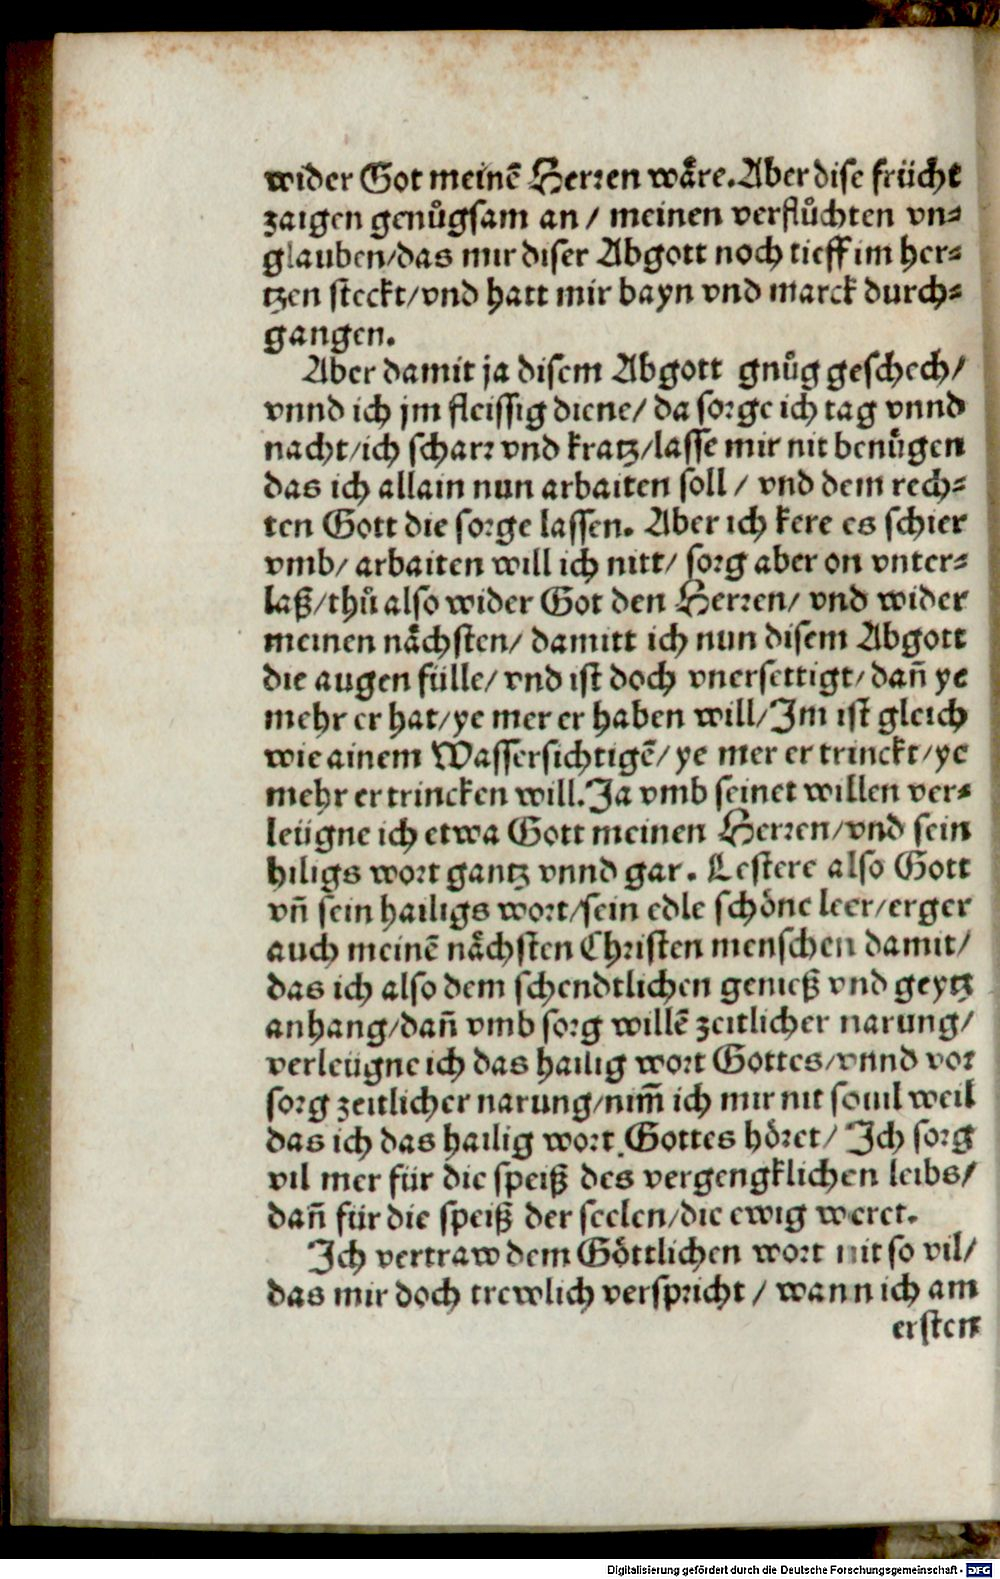 wider Got meinē Herren wåre. Aber dise frücht
zaigen genůgsam an / meinen verflůchten vn⸗
glauben/das mir diser Abgott noch tieff im her⸗
tzen steckt/vnd hatt mir bayn vnd marck durch⸗
gangen.
Aber damit ja disem Abgott gnůg geschech/
vnnd ich jm fleissig diene/ da sorge ich tag vnnd
nacht/ich scharr vnd kratz/lasse mir nit benůgen
das ich allain nun arbaiten soll / vnd dem rech⸗
ten Gott die sorge lassen. Aber ich kere es schier
vmb/ arbaiten will ich nitt/ sorg aber on vnter⸗
laß/thů also wider Got den Herren/ vnd wider
meinen nåchsten/ damitt ich nun disem Abgott
die augen fülle/ vnd ist doch vnersettigt/ dañ ye
mehr er hat/ye mer er haben will/Jm ist gleich
wie ainem Wassersichtigē/ ye mer er trinckt/ye
mehr er trincken will. Ja vmb seinet willen ver⸗
leügne ich etwa Gott meinen Herren/vnd sein
hiligs wort gantz vnnd gar. Lestere also Gott
vñ sein hailigs wort/sein edle schöne leer/erger
auch meinē nåchsten Christen menschen damit/
das ich also dem schendtlichen genieß vnd geytz
anhang/dañ vmb sorg willē zeitlicher narung/
verleügne ich das hailig wort Gottes/vnnd vor
sorg zeitlicher narung/nim̃ ich mir nit souil weil
das ich das hailig wort Gottes höret/ Jch sorg
vil mer für die speiß des vergengklichen leibs/
dañ für die speiß der seelen/die ewig weret.
Jch vertraw dem Göttlichen wort nit so vil/
das mir doch trewlich verspricht / wann ich am
ersten
Digitalisierung gefördert durch die Deutsche Forschungsgemeinschaft - DFG